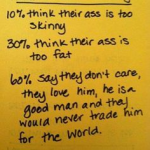 10% think their ass is too
skinny
30% think their ass is
too fat
60% say they don't care,
they love him, he is a
good man and they
would never trade him
for the World.